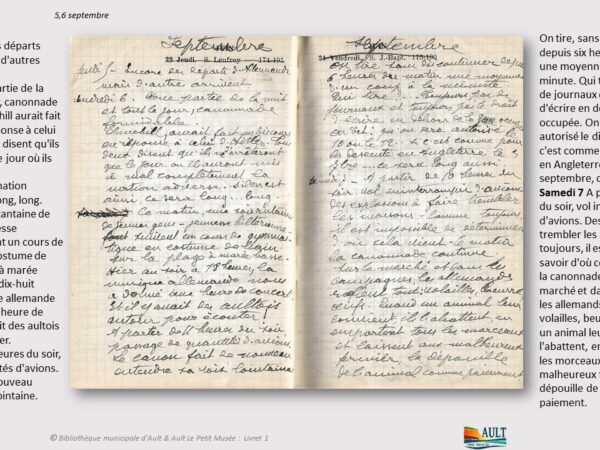 5,6 septembre
s départs
d'autres
rtie de la
, canonnade
hill aurait fait
onse à celui
disent qu'ils
jour où ils
nation
ong, long.
ntaine de
esse
nt un cours de
stume de
à marée
dix-huit
e allemande
heure de
it des aultois
er.
eures du soir,
tés d'avions.
ouveau
ointaine.
Septembre
23 Jeudi. S. Leufroy 174-191
jeudi 5 - Encore des départs d'Allemands
mais d'autres arrivent
Vendredi 6. Une partie de la nuit
et tout le jour, canonnade
formidable.
Churchill, aurait fait un discours
en réponse à celui d'Hitler. tous
deux disent qu'ils n'arrêteront
que le jour où ils auront mis
à mal complètement la
nation adverse. Si c'est
ainsi, ce sera long... long.
Ce matin, une soixantaine
de jeunes gens - jeunesse hitlérienne
font un cours de gymnas-
tique en costume de bain
sur la plage à marée basse.
Hier au soir à 18 heures, la
musique allemande nous
a donné une heure de concert
Et il y avait des aultois
autour pour écouter!
A partir de 11 heures du soir
passage de quantités d'avions.
Le canon fait de nouveau
entendre sa voix lointaine
Septembre
24 Vendredi. S. J.-Bapt. 175-190
On tire sans discontinuer depuis
6 heures du matin une moyenne
d'un coup à la minute
journaux et toujours pas le droit
d'écrire en dehors de la zone occupée
On dit qu'on sera autorisé le
10 ou le 12. c'est comme pour
la descente en Angleterre, le 3
sera long aussi
A partir de 10 heures du
soir vol ininterrompu d'avions
des explosions à faire trembler
les maisons. comme toujours
il est impossible de déterminer
d'où cela vient. le matin
la canonnade continue
Sur le marché et dans les
campagnes, les allemands
raflent tout: volailles, beurre
œufs. Quand un animal leur
convient il l'abattent, en
emportent tous les morceaux
et laissent aux malheureux
fermier la dépouille
de l'animal comme paiement
On tire, sans
depuis six he
une moyenne
minute. Qui t
de journaux e
d'écrire en de
occupée. On
autorisé le di
c'est comme
en Angleterre
septembre, c
Samedi 7 A p
du soir, vol in
d'avions. Des
trembler les
toujours, il es
savoir d'où ce
la canonnade
marché et da
les allemands
volailles, beu
un animal leu
l'abattent, en
les morceaux
malheureux f
dépouille de
paiement.
© Bibliothèque municipale d'Ault & Ault Le Petit Musée : Livret 1
AULT